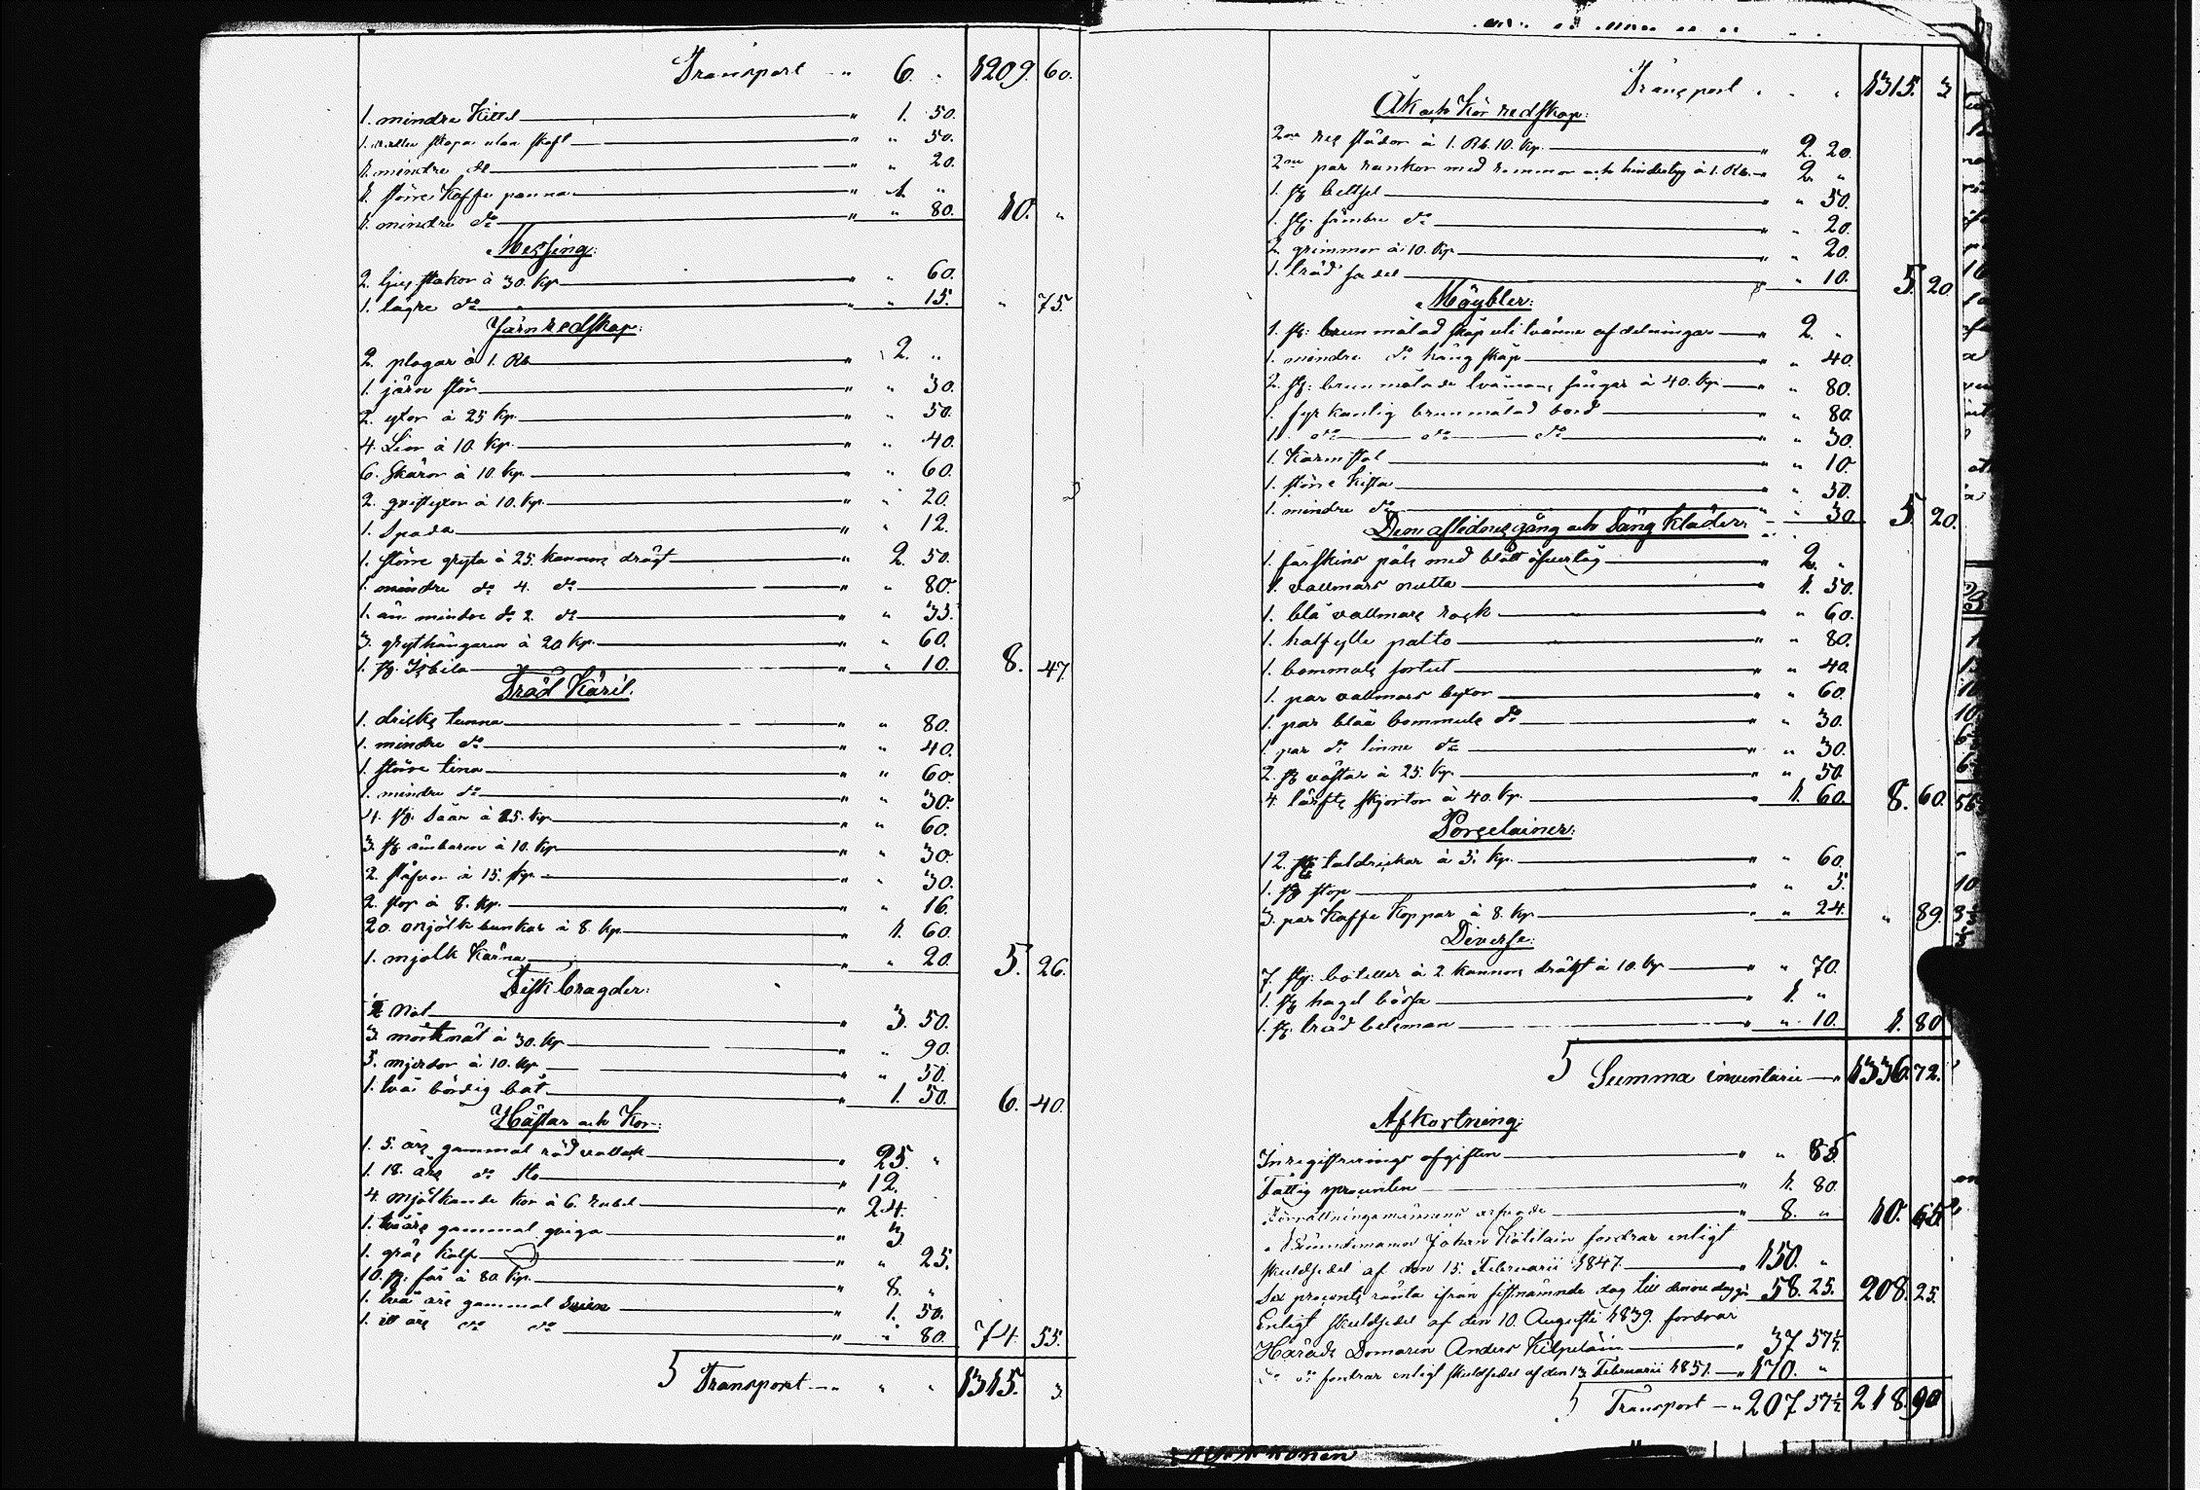 Transport „ 6. „ 1209. 60.
1. mindre Kittel „ 1. 50.
1. skopa utan skaft „ „ 50.
1. mindre do „ „ 20.
1. större Kaffe panna „ 1. „
1. mindre do „ „ 80. 10. „
Messing:
2. ljusstakor à 30. Kp „ „ 60.
1. lägre do „ „ 15. „ 75.
Järnredskap:
2. plogar à 1. Rb „ 2. „
1. järn stör „ „ 30.
2. yxor à 25 Kp. „ „ 50.
4. Lior à 10. Kp. „ „ 40.
6. Skäror à 10. Kp. „ „ 60.
2. qvistyxor à 10. Kp. „ „ 20.
1. Spada „ „ 12.
1. större gryta à 25. kannors drägt „ 2. 50.
1. mindre do 4. do „ „ 80.
1. än mindre do 2. do „ „ 35.
3. grythängaren à 20 Kp. „ „ 60.
1. st. Isbila „ „ 10. 8. 47.
Träd Käril.
1. dricks tunna „ „ 80.
1. mindre do „ „ 40.
1. större tina „ „ 60.
1. mindre do „ „ 30.
4. st. Såar à 15. Kp „ „ 60.
3. st ämbaren à 10. Kp „ „ 30.
2. stäfvor à 15. Kp. „ „ 30.
2. stop à 8. Kp. „ „ 16.
20. mjölk bunkar à 8 Kp. „ 1. 60.
1. mjölk Kärna „ „ 20. 5. 26.
Fiskbragder:
Not „ 3. 50.
3. mörtnät à 30. Kp „ „ 90.
5. mjerdor à 10. Kp „ „ 50.
1. två bördig båt „ 1. 50. 6. 40.
Hästar och Kor:
1. 5. års gammal röd vallack „ 25. „
1. 18. års do Sto „ 12.
4. mjölkande kor à 6. rubel „ 24.
1. två års gammal qviga „ 3
1. gräs kalf „ „ 25.
10. st. får à 80 Kp. „ 8. „
1. två års gammal Svin „ 1. 50.
1. ett års do do „ „ 80. 74. 55.
S Transport „ „ „ 1315. 3
Transport „ „ „ 1315. 3
Åk och Kör redskap:
2ne res slädor à 1. Rb. 10. Kp. „ 2. 20.
2ne par rankor med remmor och hindertyg à 1. Rb. „ 2. „
1. st betsel „ „ 50.
1. st. sämbre do „ „ 20.
2. grimmor à 10. Kp „ „ 20.
1. träd sadel „ „ 10. 5. 20
Möybler:
1. st. brun målad skåp uti tvänne afdelningar „ 2. „
1. mindre do häng skåp „ „ 40.
2. st. brunmålade tvåmans sängar à 40. Kp „ „ 80.
1. fyrkantig brunmålad bord „ „ 80.
1. do do do „ „ 30.
1. Karmstol „ „ 10.
1. större Kista „ „ 50.
1. mindre do „ „ 30. 5. 20.
Den aflidnes gång och Säng kläder:
1. fårskins päls med blått öfvertåg „ 2. „
1. vallmars mutta „ 1. 50.
1. blå vallmars rock „ „ 60.
1. halfylle palto „ „ 80.
1. bommuls sortut „ „ 40.
1. par vallmars byxor „ „ 60.
1. par blåa bommuls do „ „ 30.
1. par do linne do „ „ 30.
2. st västar à 25. Kp. „ „ 50.
4. lärfts skjortor à 40. Kp. „ 1. 60. 8. 60.
Porcelainer:
12. st taldrickar à 5. Kp. „ „ 60.
1. st stop „ „ 5.
3. par Kaffe Koppar à 8. Kp „ „ 24. „ 89.
Diverse:
7. st. boteller à 2. kannors drägt à 10. Kp „ „ 70.
1. st hagel bössa „ 1. „
1. st. träd betsman „ „ 10. 1. 80
S Summa inventarii „ 1336. 72.
Afkortning:
Inregistrerings afgiften „ „ 85
Fattig procenten „ 1. 80.
Förrättningsmännens arfvode „ 8. „ 10. 65
Johan Kötilain fordrar enligt
skuldsedel af den 15. Februarii 1847. „ 150. „
Sex procents ränta ifrån sistnämnde dag till denne dag „ 58. 25. 208. 25.
Enligt skuldsedel af den 10. Augusti 1839. fordrar
Härads Domaren Anders Kilpeläin „ 37 57½.
do do fordrar enligt skuldsedel af den 13 Februarii 1851. „ 170. „
S Transport „ 207 57½ 218. 90